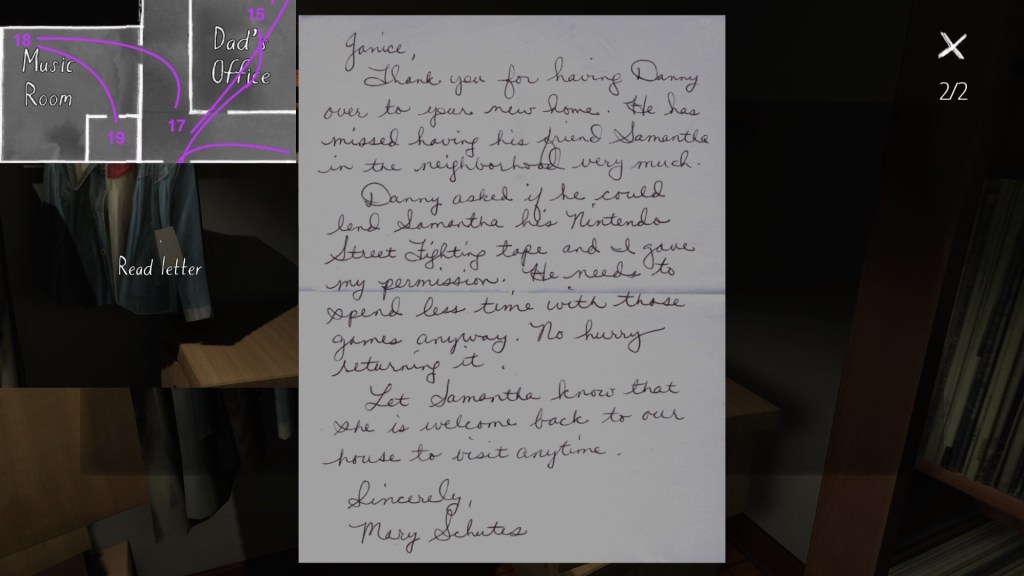 15
18
Music
Room
Dad's
Office
19
17
Read letter
Janice,
Thank you for having Danny
over to your new home. He has
missed having his friend Samantha
in the neighborhood very much.
Danny asked if he could
lend Samantha his Nintendo
Street Fighting tape and I gave
my permission. He needs to
spend less time with those
games anyway. No hurry
returning it.
Let Samantha know that
she is welcome back to our
house to visit anytime.
Sincerely,
Mary Schutes
2/2